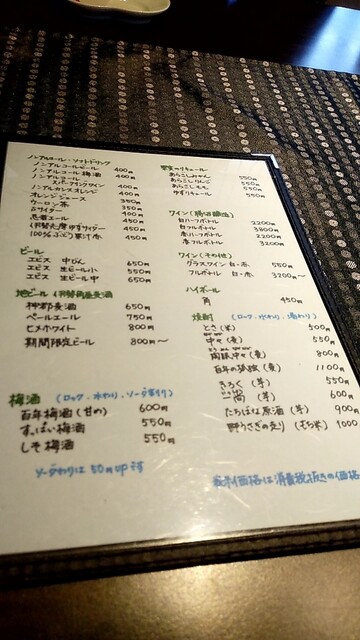 ノンアルコール・ソフトドリンク
ノンアルコールビール 400円
ノンアルコール梅酒 400円
ノンアルコール 400円
スパークリングワイン
ノンアルカシスオレンジ 400円
オレンジジュース 350円
ウーロン茶 350円
400円
忍者エール 450円
450円
450円
ビール
エビス 中びん 650円
エビス 生ビール小 550円
エビス 生ビール中 650円
地ビール (伊勢角屋麦酒)
神都麦酒 650円
ペールエール 750円
ヒメホワイト 800円
期間限定ビール 800円〜
梅酒 (ロック・水わり・ソーダ割り)
百年梅酒 (甘め) 600円
すっぱい梅酒 550円
しそ梅酒 550円
ソーダわりは 50円UPです
果実のリキュール
あらごしみかん 550円
あらごしりんご 550円
あらごしもも 550円
ゆずリキュール 550円
ワイン
白ハーフボトル 2200円
白フルボトル 3800円
赤ハーフボトル 2200円
赤フルボトル 3200円
ワイン (その他)
グラスワイン 白・赤 550円
フルボトル 白・赤 3200円〜
ハイボール
角 450円
焼酎 (ロック・水わり・湯わり)
とさ (米) 500円
中々 (麦) 550円
陶豚中々 (麦) 800円
百年の孤独 (麦) 1100円
きろく (芋) 550円
(芋) 600円
たちばな原酒 (芋) 900
野うさぎの走り (もち米) 1000
表示価格は消費税抜きの価格